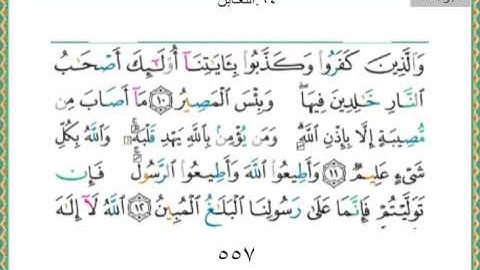 ٦٤ .التغابن
وَٱلَّذِينَ كَفَرُوا۟ وَكَذَّبُوا۟ بِـَٔايَـٰتِنَآ أُو۟لَـٰٓئِكَ أَصْحَـٰبُ
ٱلنَّارِ خَـٰلِدِينَ فِيهَا ۖ وَبِئْسَ ٱلْمَصِيرُ ۝١٠ مَآ أَصَابَ مِن
مُّصِيبَةٍ إِلَّا بِإِذْنِ ٱللَّهِ ۗ وَمَن يُؤْمِنۢ بِٱللَّهِ يَهْدِ قَلْبَهُۥ ۚ وَٱللَّهُ بِكُلِّ
شَىْءٍ عَلِيمٌ ۝١١ وَأَطِيعُوا۟ ٱللَّهَ وَأَطِيعُوا۟ ٱلرَّسُولَ ۚ فَإِن
تَوَلَّيْتُمْ فَإِنَّمَا عَلَىٰ رَسُولِنَا ٱلْبَلَـٰغُ ٱلْمُبِينُ ۝١٢ ٱللَّهُ لَآ إِلَـٰهَ
٥٥٧